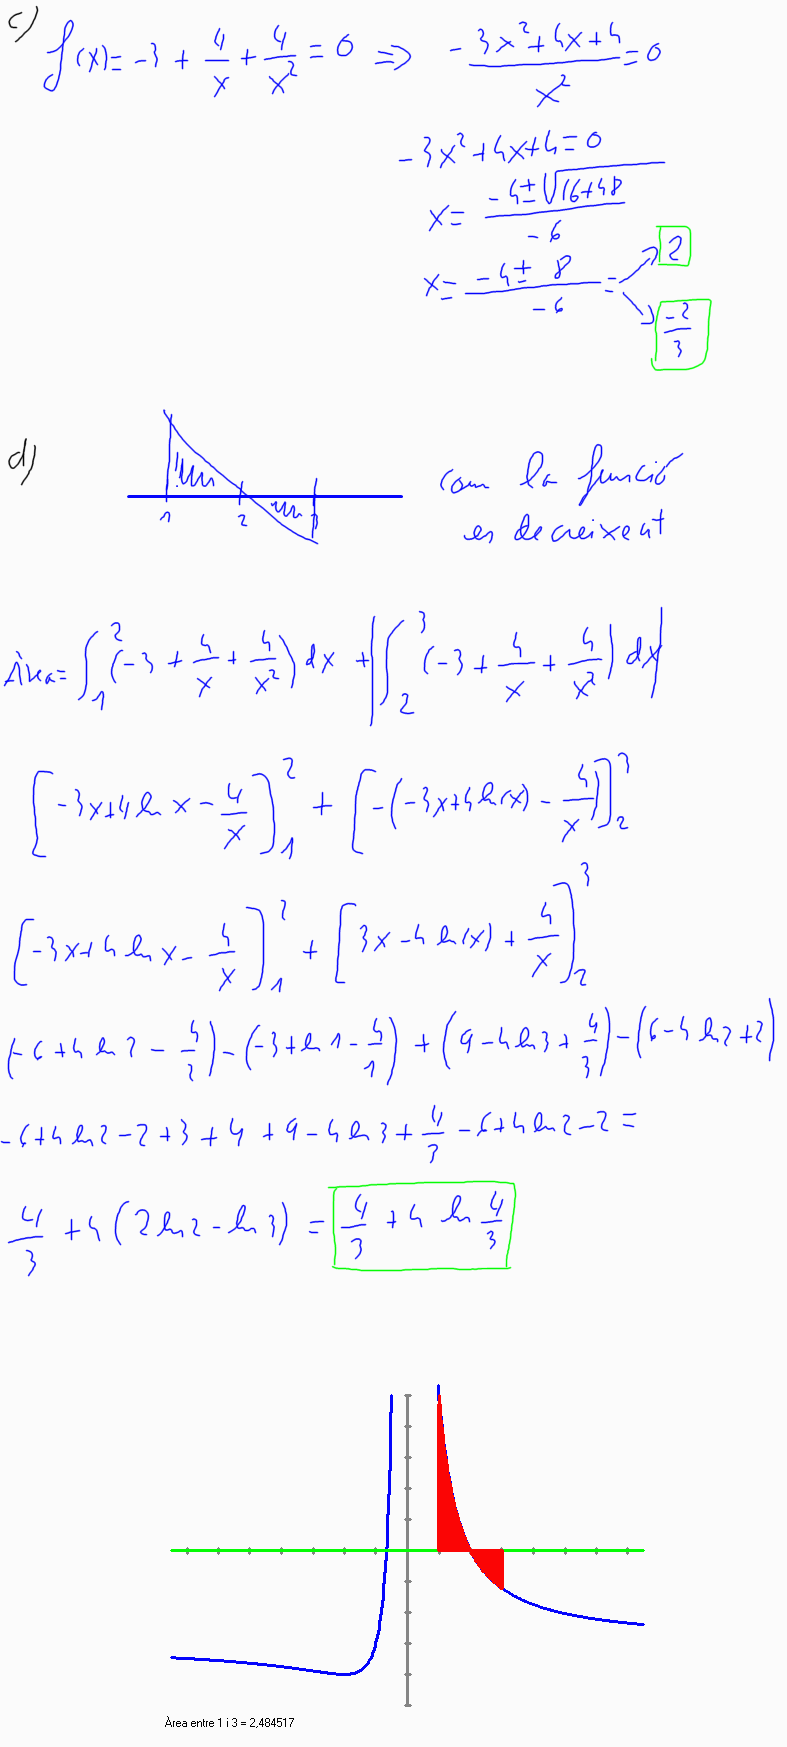 c) f(x) = -3 + 4/x + 4/x² = 0 ⇒ -3x²+4x+4/x² = 0
-3x²+4x+4=0
x= -4±√16+48/-6
x= -4± 8/-6 = 2
-2/3
d) com la funció
es decreixent
1 2 3
Àrea= ∫₁² (-3 + 4/x + 4/x²) dx + |∫₂³ (-3 + 4/x + 4/x²) dx|
[-3x+4 ln x - 4/x]₁² + [-(-3x+4 ln(x) - 4/x)]₂³
[-3x+4 ln x - 4/x]₁² + [3x-4 ln(x) + 4/x]₂³
(-6+4 ln 2 - 4/2) - (-3+ln 1 - 4/1) + (9-4 ln 3 + 4/3) - (6-4 ln 2+2)
-6+4 ln 2-2+3+4+9-4 ln 3 + 4/3 -6+4 ln 2-2 =
4/3 + 4 (2 ln 2 - ln 3) = 4/3 + 4 ln 4/3
Àrea entre 1 i 3 = 2,484517